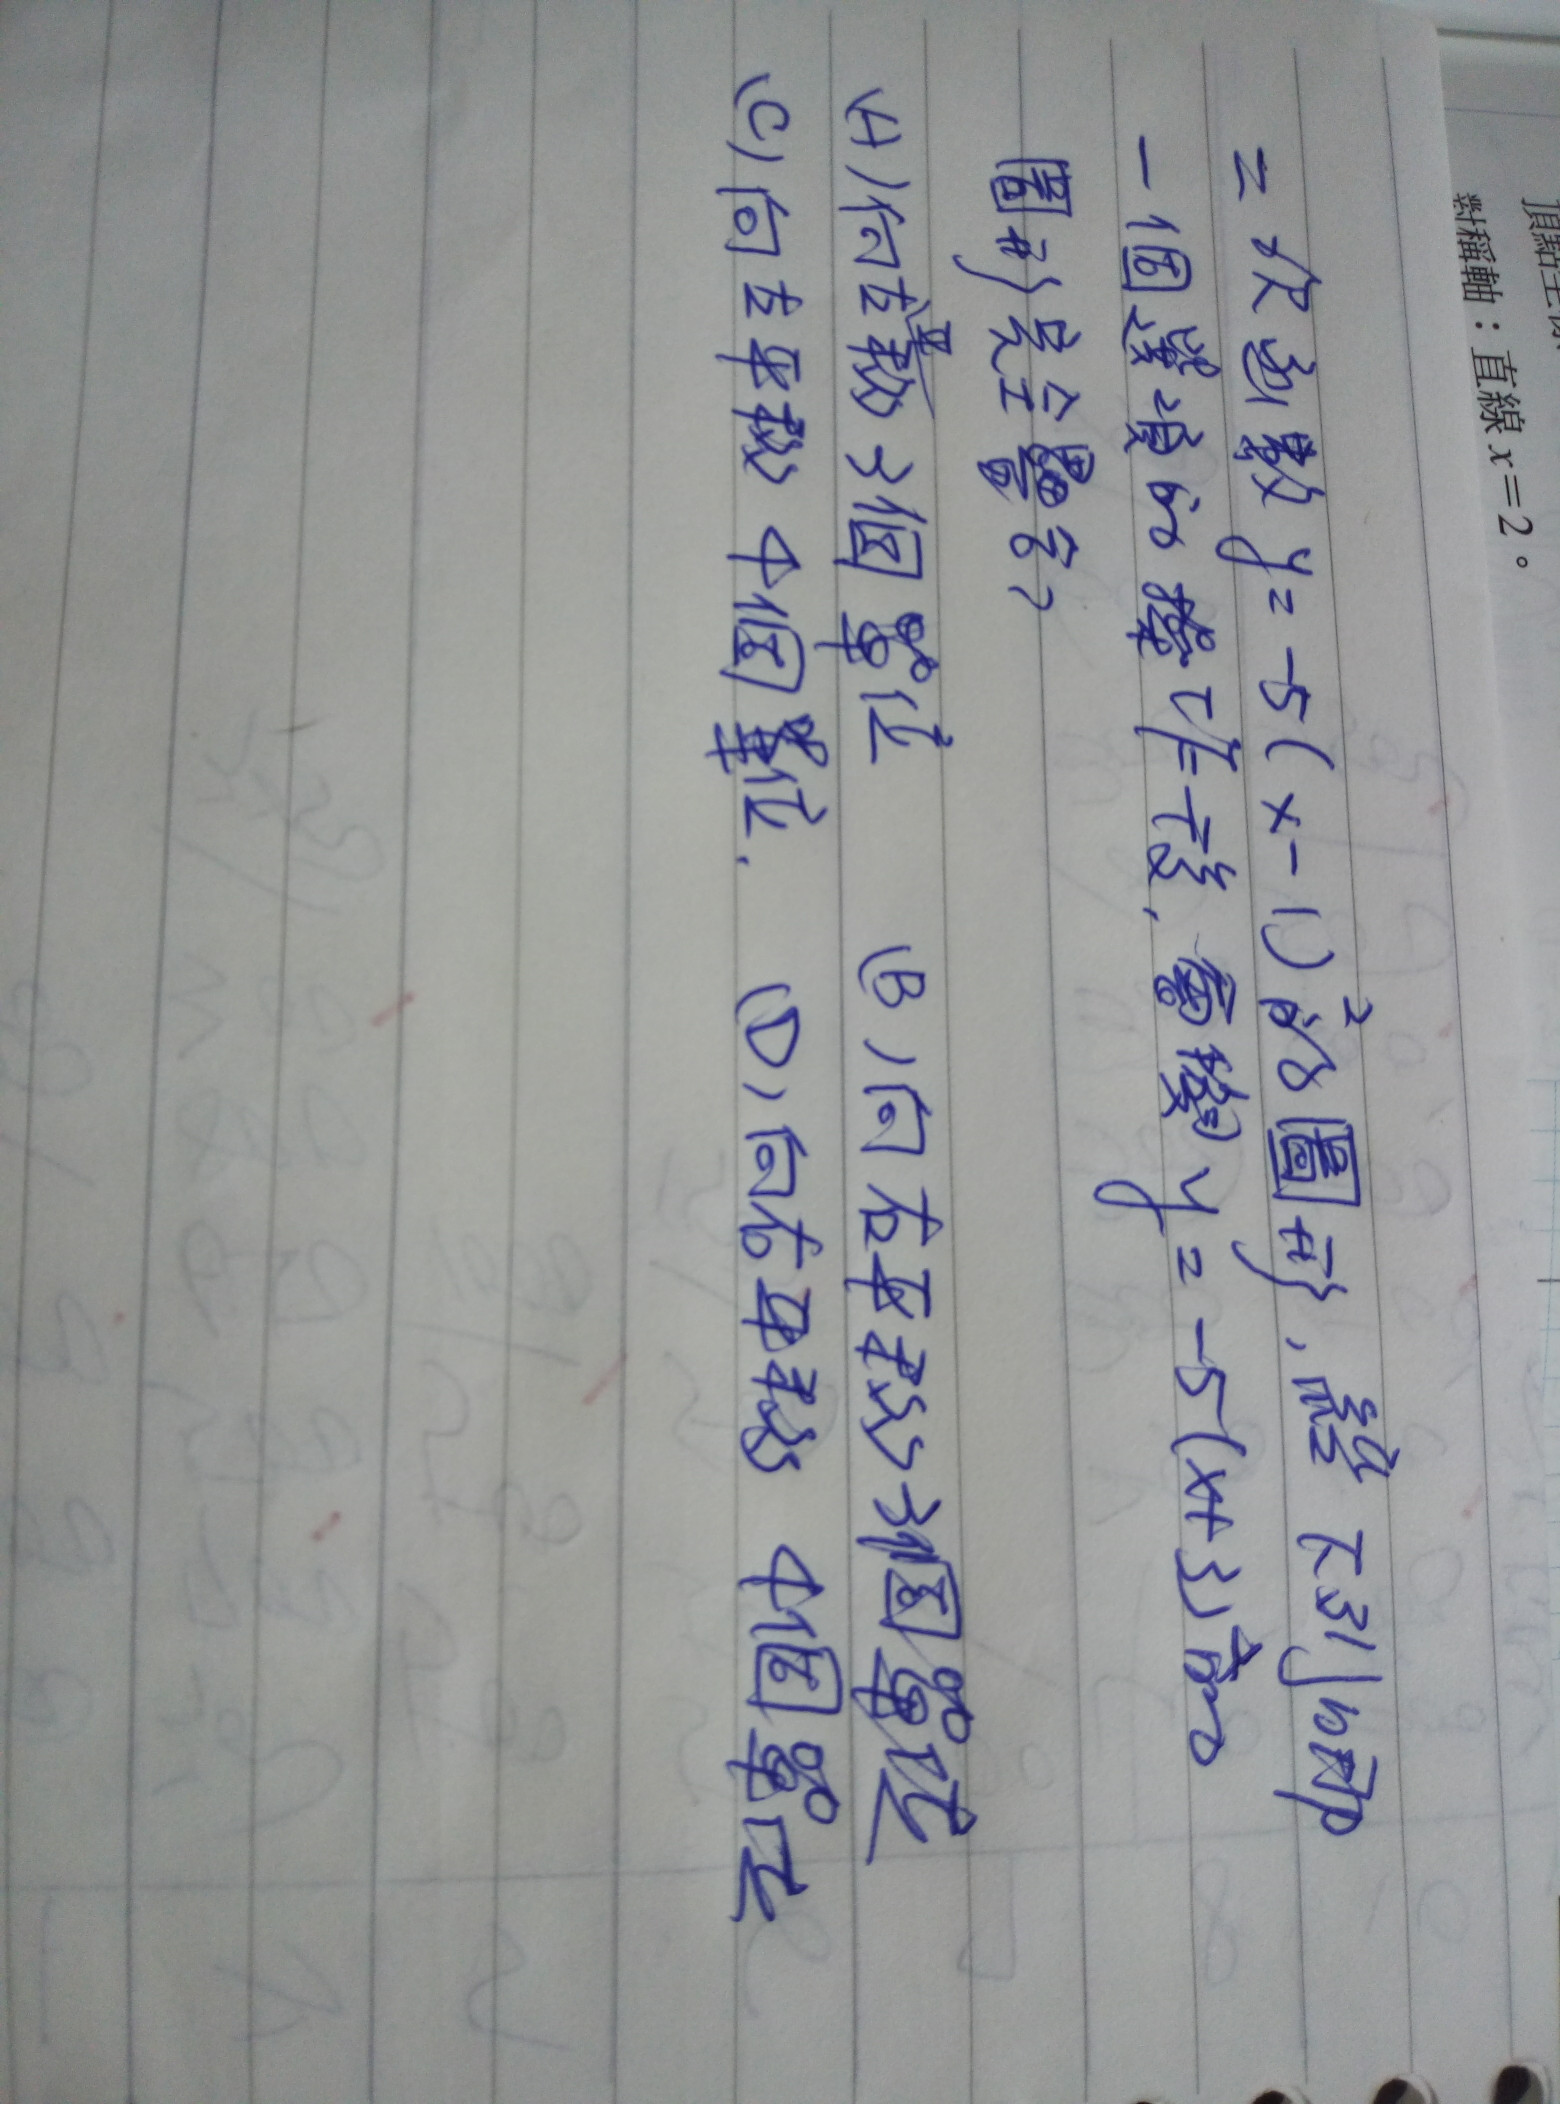 對稱軸：直線x=2。
二次函數y=-5(x-1)²的圖形,經下列哪
一個選項的操作後,會變y=-5(x+3)²的
圖形完全疊合?
(A)向左平移3個單位 (B)向右平移3個單位
(C)向左平移4個單位. (D)向右平移4個單位